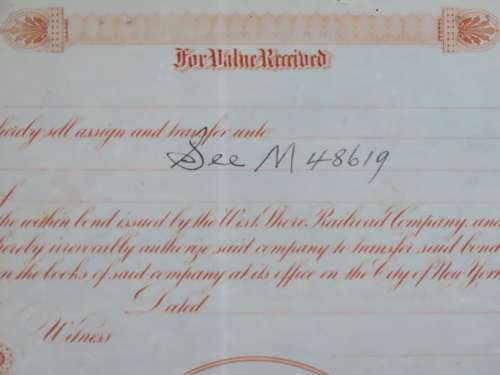 For Value Received
hereby sell assign and transfer unto
See M 48619
the within bond issued by the West Shore Railroad Company, and
hereby irrevocably authorize said company to transfer said bond
on the books of said company at its office in the City of New York
Dated
Witness